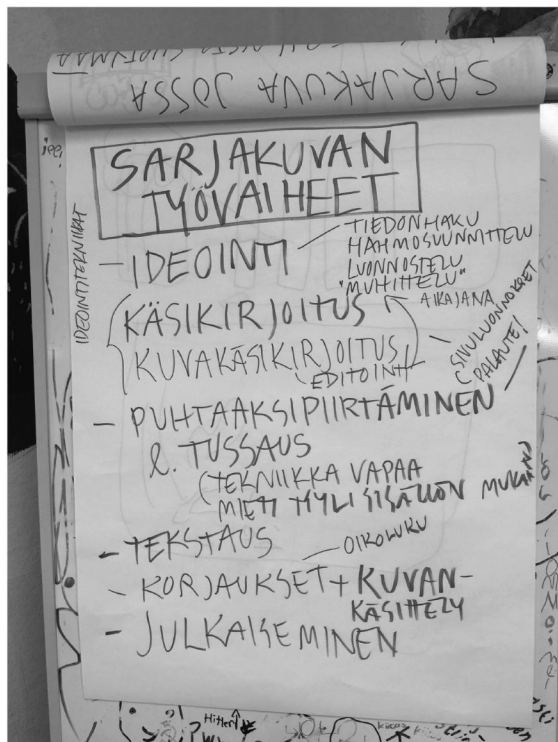 SARJAKUVA JOSSA
SARJAKUVAN
TYÖVAIHEET
IDEOINTITEKNIIKAT
- IDEOINTI
TIEDONHAKU
HAHMOSUUNNITTELU
LUONNOSTELU
"MUHITTELU"
AIKAJANA
KÄSIKIRJOITUS
KUVAKÄSIKIRJOITUS
EDITOINTI
- SIVULUONNOKSET
PALAUTE!
- PUHTAAKSIPIIRTÄMINEN
& TUSSAUS
(TEKNIIKKA VAPAA
MIETI TYYLI SISÄLLÖN MUKAAN
- TEKSTAUS
- OIKOLUKU
- KORJAUKSET + KUVAN-
KÄSITTELY
- JULKAISEMINEN
Hitler